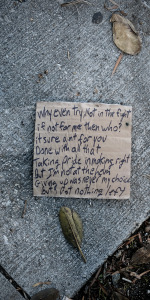 Why even try Not in the fight
if not for me then who?
it sure aint for you
Done with all that
taking pride in making right
but I'm not at the helm
Giving up was never my choice
But I got nothing left